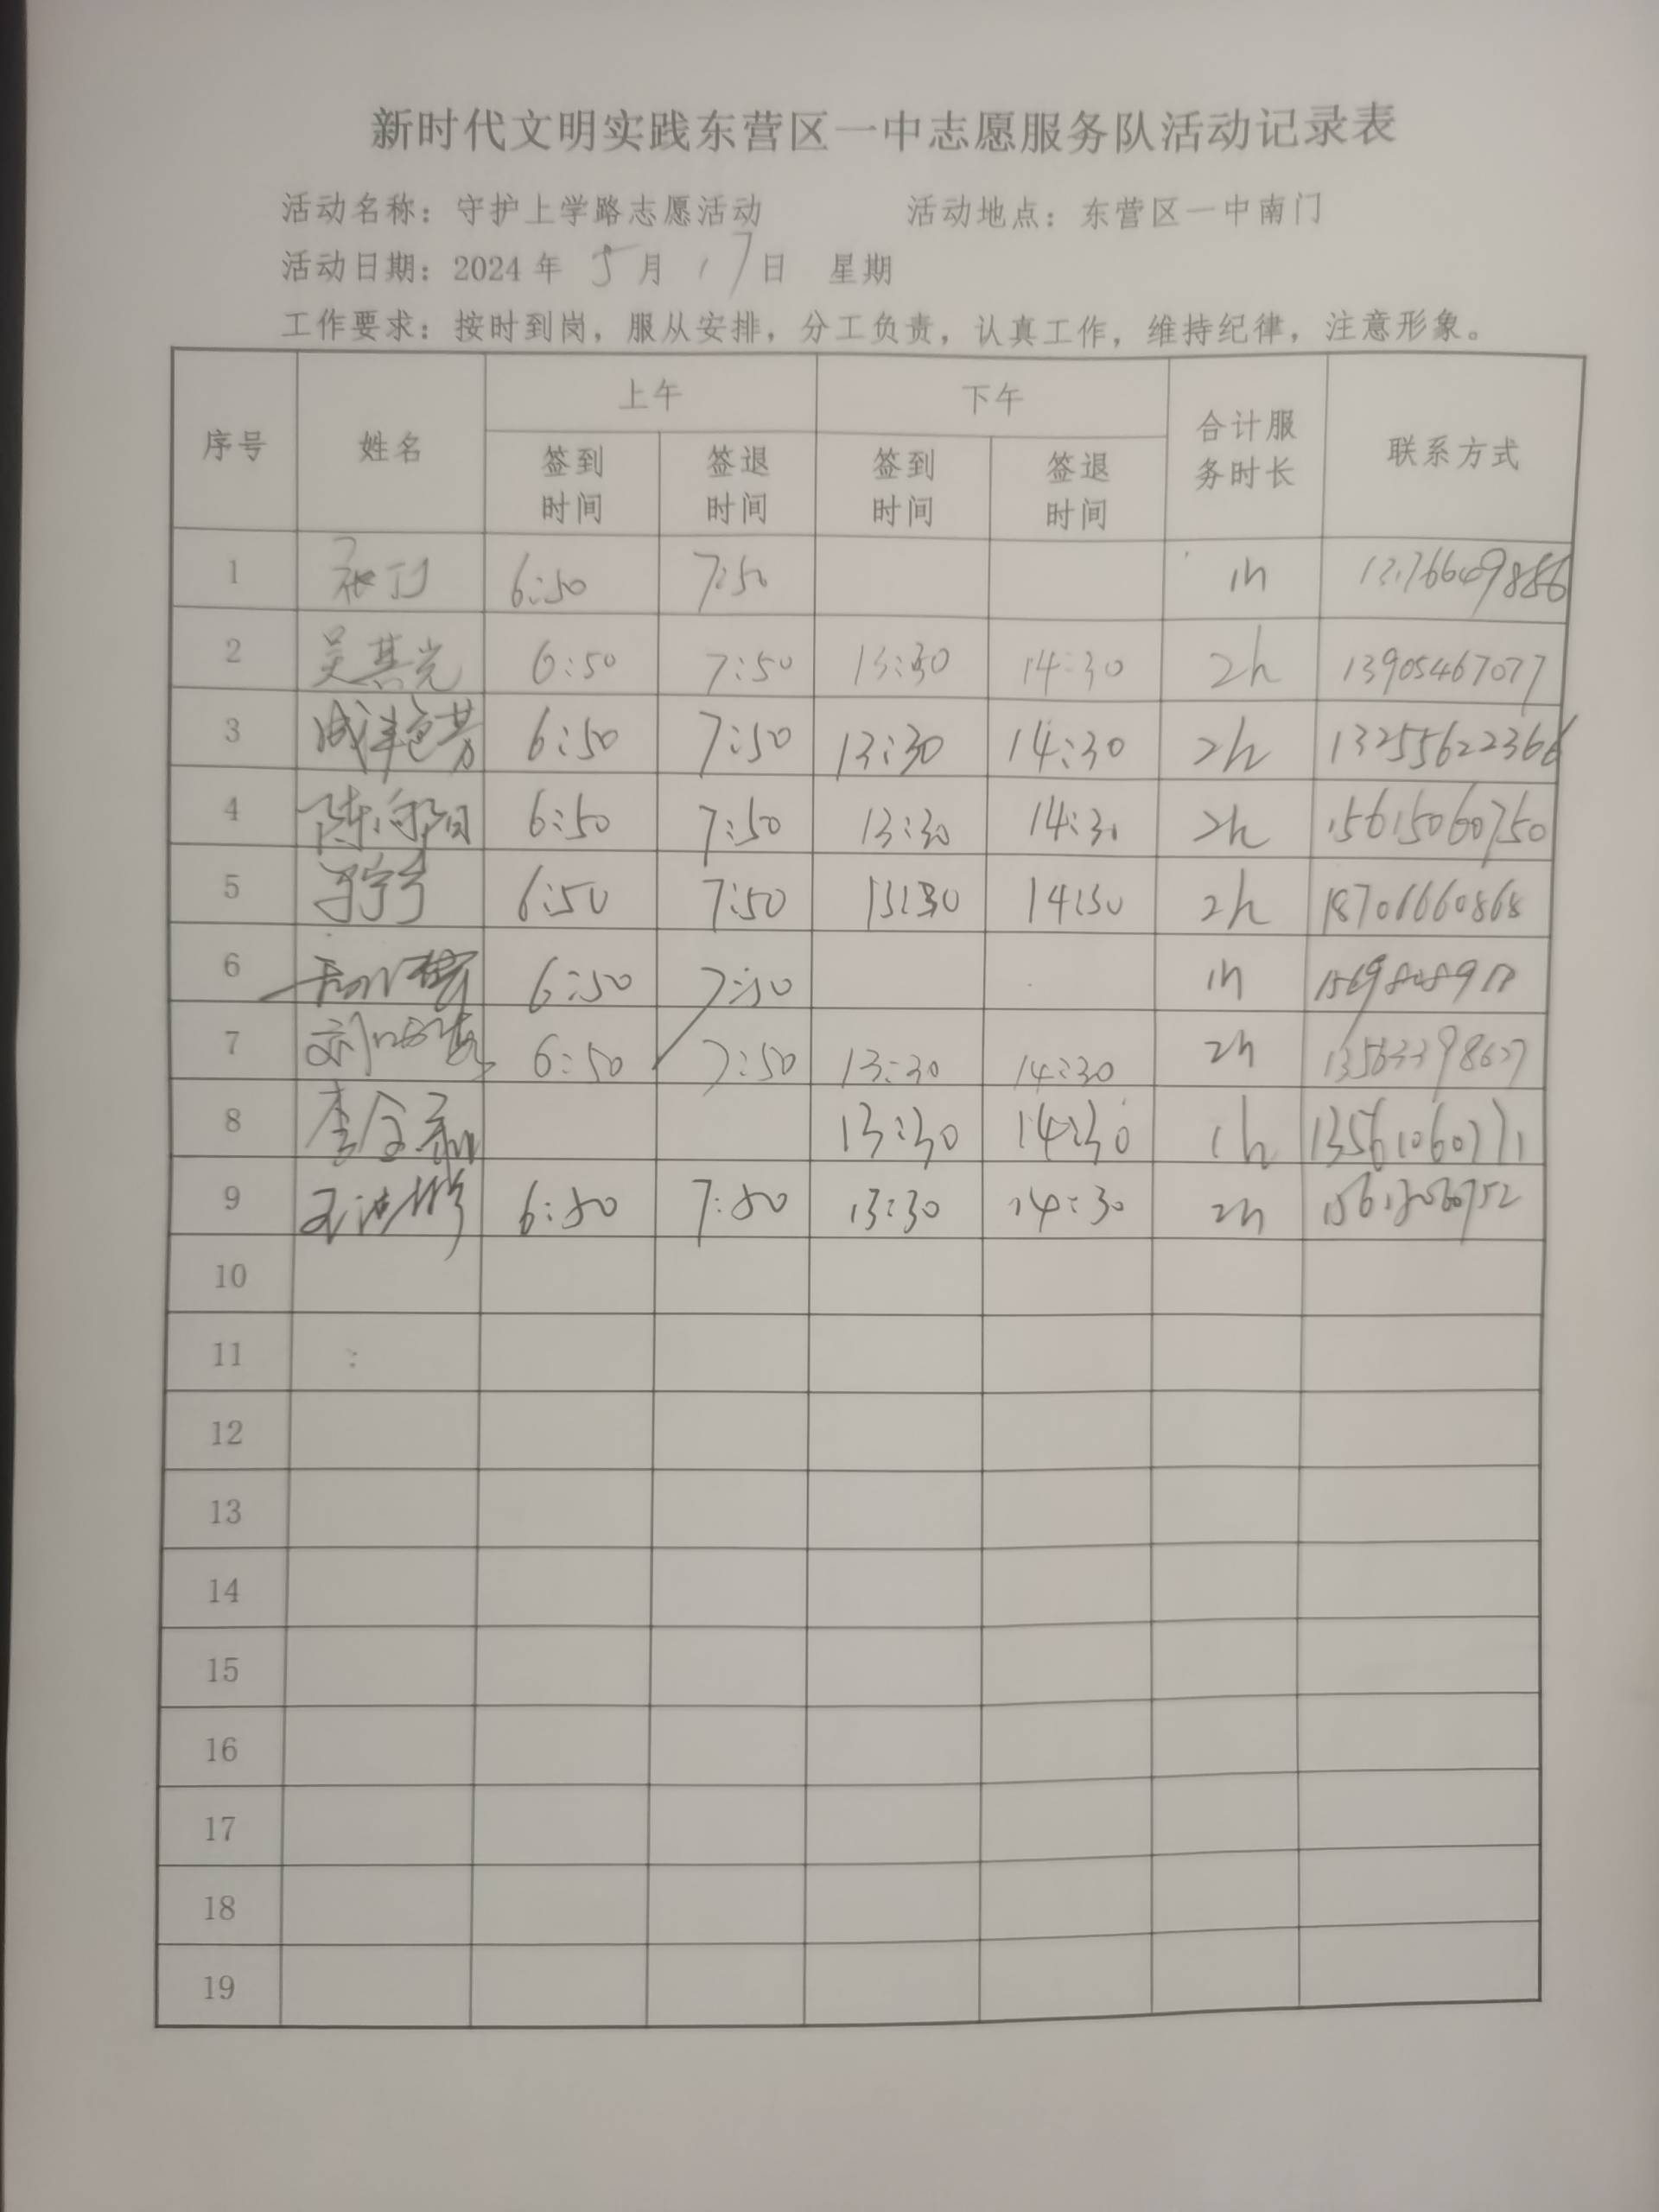 新时代文明实践东营区一中志愿服务队活动记录表
活动名称：守护上学路志愿活动 活动地点：东营区一中南门
活动日期：2024年 5月 17日 星期
工作要求：按时到岗，服从安排，分工负责，认真工作，维持纪律，注意形象。
序号 姓名 上午 下午 合计服务时长 联系方式
签到时间 签退时间 签到时间 签退时间
1 6:50 7:50 1h
2 吴其光 6:50 7:50 13:30 14:30 2h 13905467077
3 6:50 7:50 13:30 14:30 2h 13255622366
4 陈向阳 6:50 7:50 13:30 14:30 2h 15615060750
5 6:50 7:50 13:30 14:30 2h 18706660868
6 6:50 7:50 1h
7 6:50 7:50 13:30 14:30 2h
8 13:30 14:30 1h 13561060771
9 6:50 7:50 13:30 14:30 2h
10
11
12
13
14
15
16
17
18
19